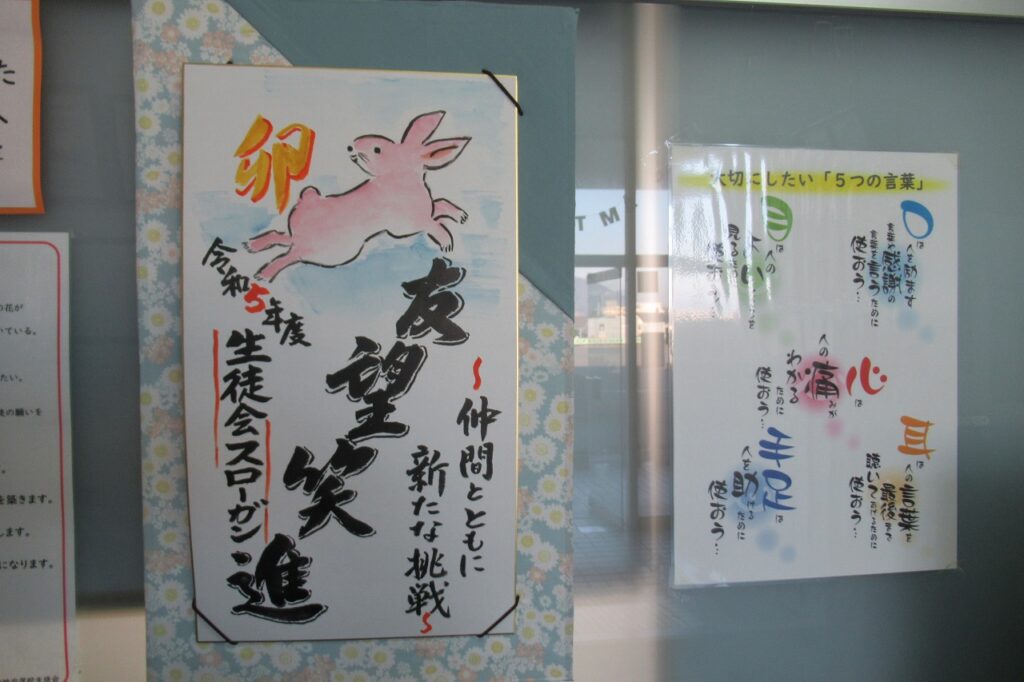 た
の花が
いている。
たい。
徒の願いを
を築きます。
します。
になります。
卯
令和5年度
生徒会スローガン
友望笑進
～仲間とともに
新たな挑戦～
大切にしたい「５つの言葉」
口は
人を励ます
言葉や感謝の
言葉を言うために
使おう…
目は
人の
使おう…
耳は
人の言葉を
最後まで
聴いてあげるために
使おう…
心は
人の痛みが
わかる
ために
使おう…
手足は
人を助けるために
使おう…